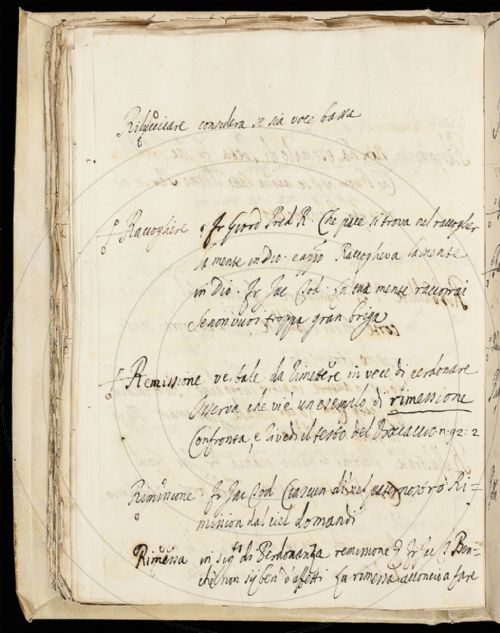 considera se sia voce bassa
Raccogliere Fr Giord Pred R. Che pace si trova nel raccoglier
la mente in Dio. e appo Raccoglieva la mente
in Dio. Fr Jac Tod. La tua mente raccorrai
Se non vuoi troppa gran briga
Remissione verbale da Rimettere in vece di perdonare
Osserva che vi è un esempio di rimessione
Confronta, e rivedi il testo del Boccaccio n. 92: 2
Rimissione Fr Jac Tod Ciascun dì nel paternostro Ri-
mission dal ciel domandi
Rimessa in sigo di Perdonanza remissione Fr Jac T Ben-
chè non sij ben d'affetti La rimessa acconcia a fare